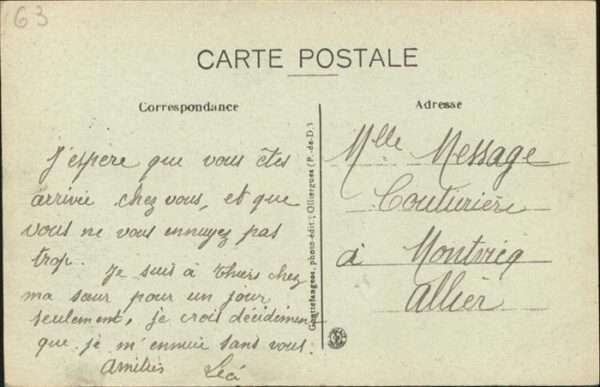 63
CARTE POSTALE
Correspondance
J'espère que vous êtes
arrivée chez vous, et que
vous ne vous ennuyez pas
trop. Je suis à Thiers chez
ma sœur pour un jour
seulement, je crois décidément
que je m'ennuie sans vous.
Amitiés Léa
Gouttefangeas, photo-édit; Olliergues (P.-de-D.)
Adresse
Mlle Message
Couturière
à Montvicq
Allier